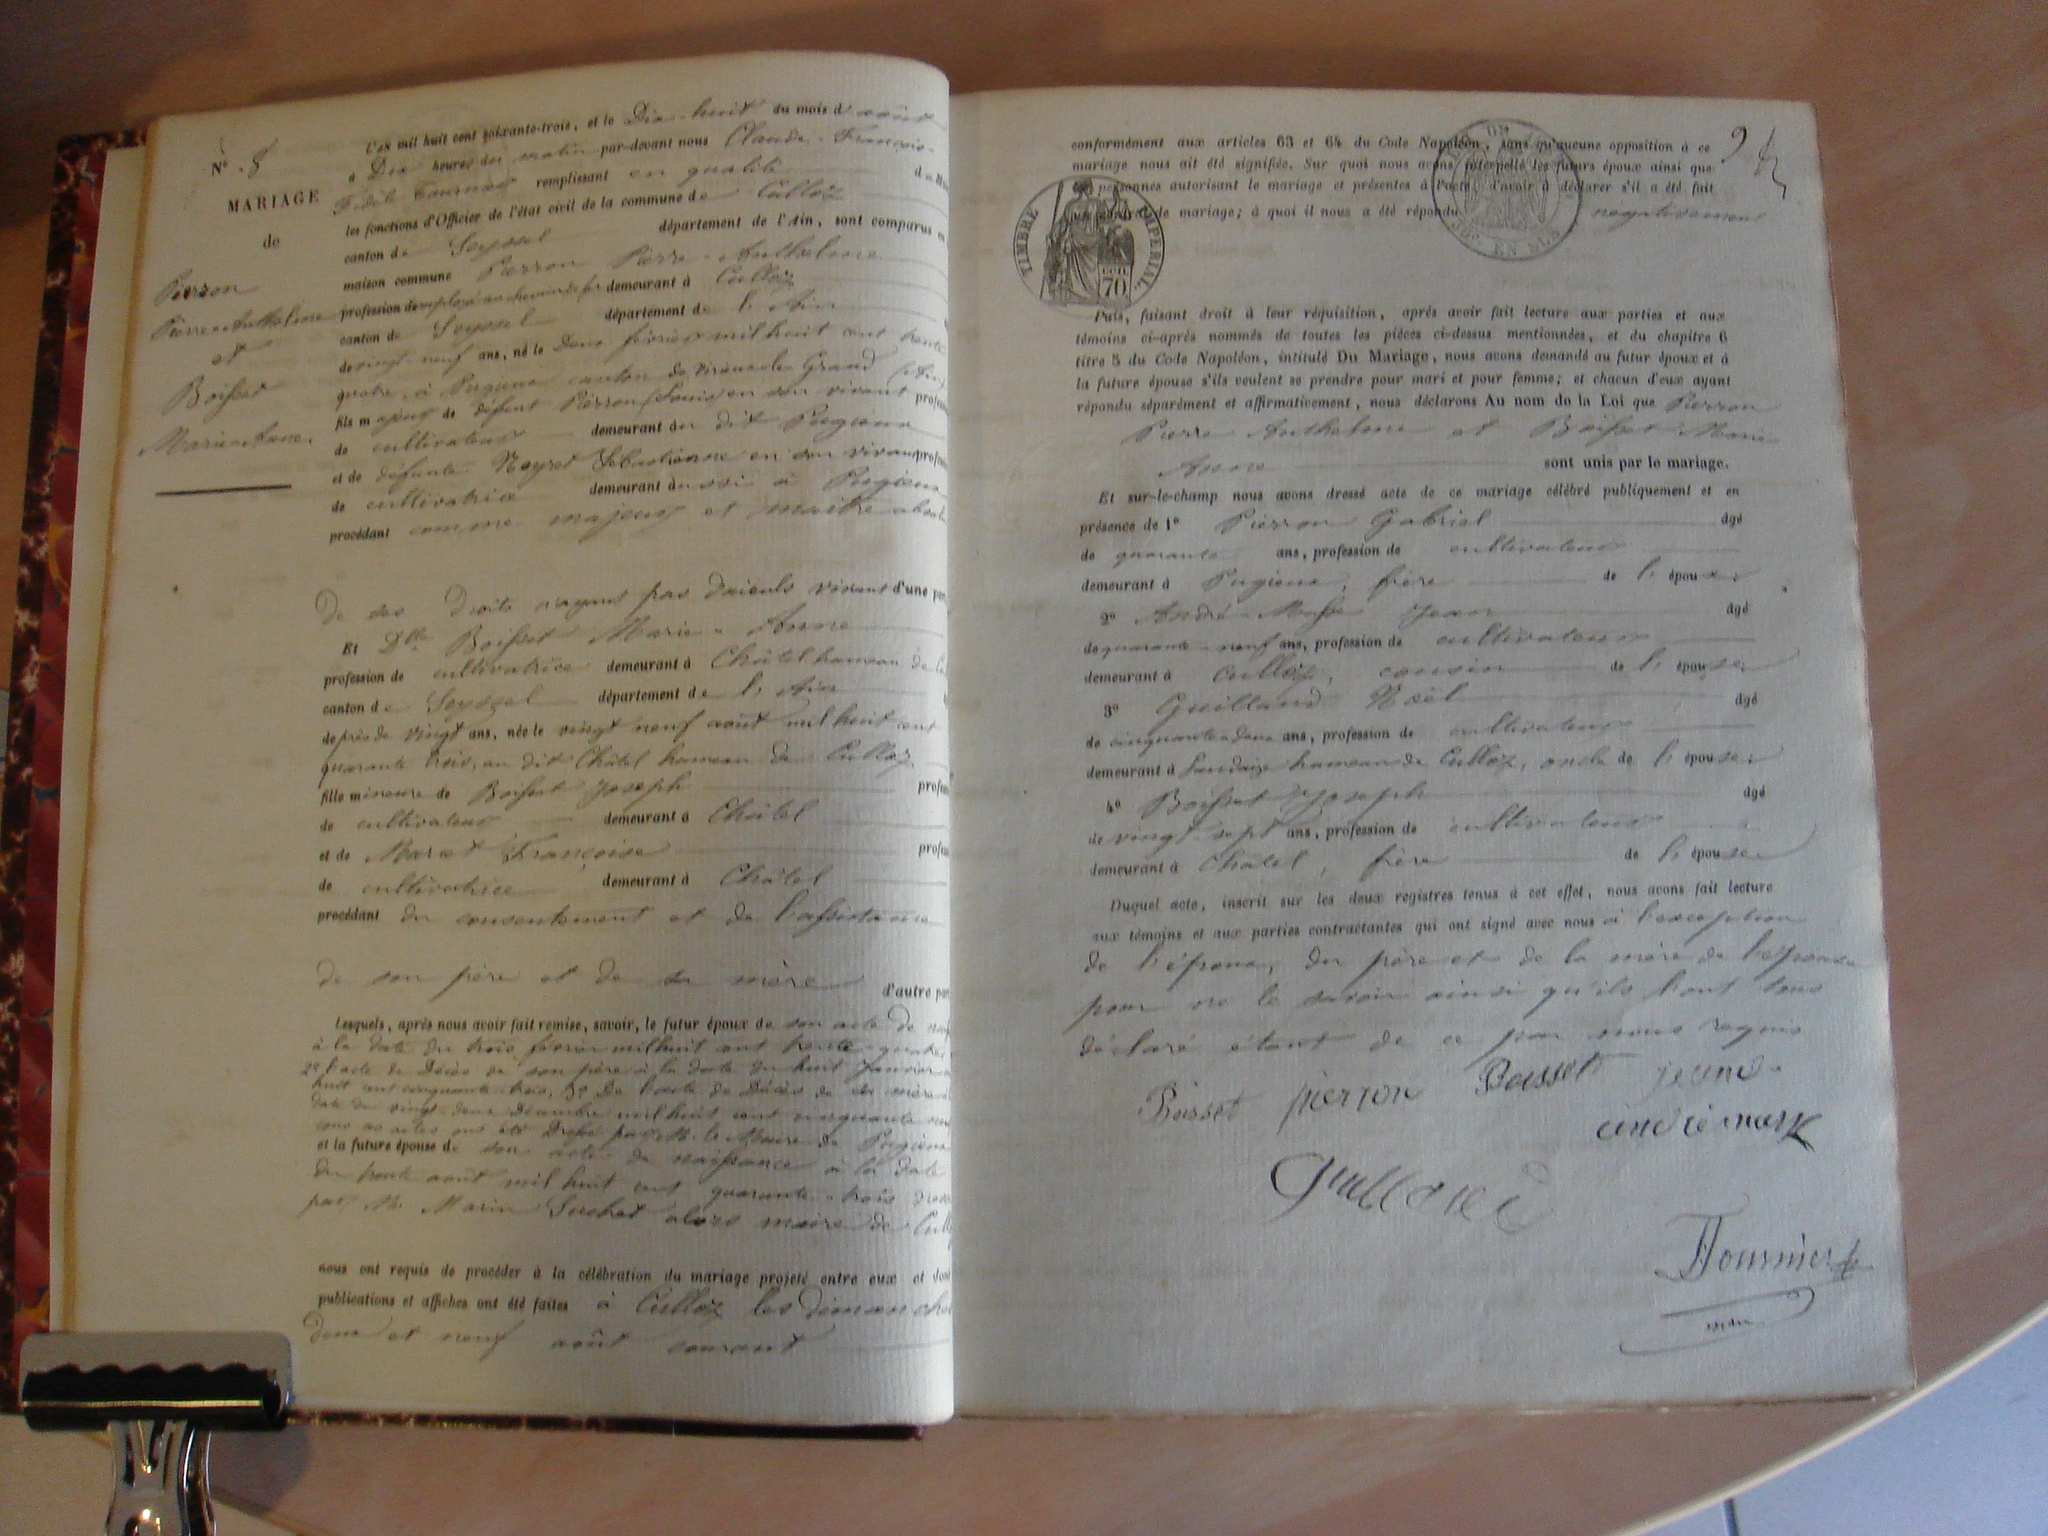 N° 8
MARIAGE
de
Pierron
Pierre-Anthelme
et
Boisset
Marie-Anne.
L'an mil huit cent soixante-trois, et le Dix-huit du mois d'août
à Dix heures du matin par-devant nous Claude-François-
Fidèle Fournier remplissant en qualité de
les fonctions d'Officier de l'état civil de la commune de Culloz
canton de Seyssel département de l'Ain, sont comparus en
maison commune Pierron Pierre-Anthelme
profession de employé au chemin de fer demeurant à Culloz
canton de Seyssel département de l'Ain
de vingt-neuf ans, né le Deux février mil huit cent trente
quatre, à Pugieux canton de Virieu-le-Grand (Ain)
fils majeur de défunt Pierron (Louis) en son vivant profes
de cultivateur demeurant au dit Pugieux
et de défunte Neyret Sébastienne en son vivant profes
de cultivatrice demeurant aussi à Pugieux
procédant comme majeur et maître absolu
de ses droits n'ayant pas d'aïeuls vivant d'une part
Et Dlle Boisset Marie-Anne
profession de cultivatrice demeurant à Châtel hameau de
canton de Seyssel département de l'Ain
de près de vingt ans, née le vingt neuf août mil huit cent
quarante trois, au dit Châtel hameau de Culloz
fille mineure de Boisset Joseph profes
de cultivateur demeurant à Châtel
et de Maret Françoise profes
de cultivatrice demeurant à Châtel
procédant du consentement et de l'assistance
de son père et de sa mère d'autre part
Lesquels, après nous avoir fait remise, savoir, le futur époux de son acte de
à la date du trois février mil huit cent trente-quatre,
2° l'acte de Décès de son père à la date du huit Janvier
huit cent cinquante-trois, 3° De l'acte de Décès de sa mère
date du vingt-deux Décembre mil huit cent cinquante
tous ces actes ont été Dressé par M. le Maire de Pugieux
et la future épouse de son acte de naissance à la date
du trente août mil huit cent quarante-trois
par M. Marin Suchet alors maire de Culloz
nous ont requis de procéder à la célébration du mariage projeté entre eux et dont
publications et affiches ont été faites à Culloz les dimanches
deux et neuf août courant
conformément aux articles 63 et 64 du Code Napoléon, sans qu'aucune opposition à ce
mariage nous ait été signifiée. Sur quoi nous avons interpellé les futurs époux ainsi que
personnes autorisant le mariage et présentes à l'acte, d'avoir à déclarer s'il a été fait
de mariage; à quoi il nous a été répondu négativement
TIMBRE IMPÉRIAL
70
Puis, faisant droit à leur réquisition, après avoir fait lecture aux parties et aux
témoins ci-après nommés de toutes les pièces ci-dessus mentionnées, et du chapitre 6
titre 5 du Code Napoléon, intitulé Du Mariage, nous avons demandé au futur époux et à
la future épouse s'ils veulent se prendre pour mari et pour femme; et chacun d'eux ayant
répondu séparément et affirmativement, nous déclarons Au nom de la Loi que Pierron
Pierre Anthelme et Boisset Marie
Anne sont unis par le mariage.
Et sur-le-champ nous avons dressé acte de ce mariage célébré publiquement et en
présence de 1° Pierron Gabriel âgé
de quarante ans, profession de cultivateur
demeurant à Pugieux, frère de l'époux
2° André-Masse Jean âgé
de quarante-neuf ans, profession de cultivateur
demeurant à Culloz, cousin de l'épouse
3° Guilland Noël âgé
de cinquante-deux ans, profession de cultivateur
demeurant à Landaize hameau de Culloz, oncle de l'épouse
4° Boisset Joseph âgé
de vingt-sept ans, profession de cultivateur
demeurant à Châtel, frère de l'épouse
Duquel acte, inscrit sur les deux registres tenus à cet effet, nous avons fait lecture
aux témoins et aux parties contractantes qui ont signé avec nous à l'exception
de l'épouse, du père et de la mère de l'épouse
pour ne le savoir ainsi qu'ils l'ont tous
déclaré étant de ce par nous requis
Boisset pierron Boisset jeune
andré mass
Guilland
Fournier